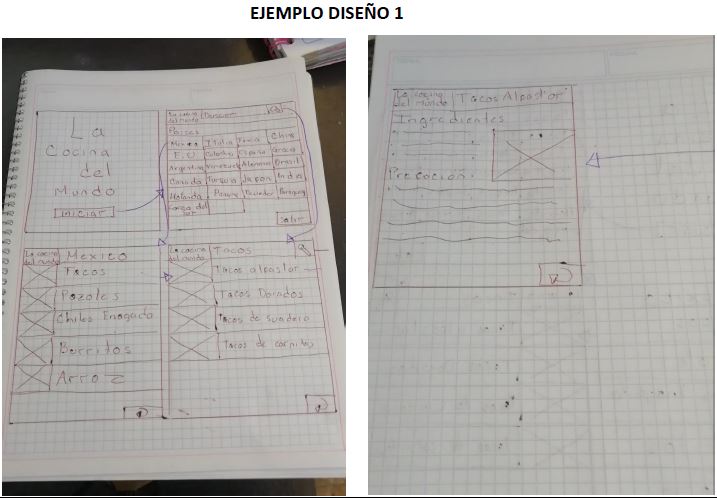 EJEMPLO DISEÑO 1
La
Cocina
del
Mundo
Iniciar
La cocina
del mundo
Buscar
Paises
Mexico Italia China
E.U Colombia España Grecia
Argentina Venezuela Alemania Brasil
Canada Turquia Japon India
Holanda Ecuador Paraguay
Corea del
sur
Salir
La cocina
del mundo
Mexico
Tacos
Pozoles
Chiles Enogada
Burritos
Arroz
La cocina
del mundo
Tacos
Tacos alpastor
Tacos Dorados
Tacos de Suadero
Tacos de carnitas
La cocina
del mundo
Tacos Alpastor
Ingredientes